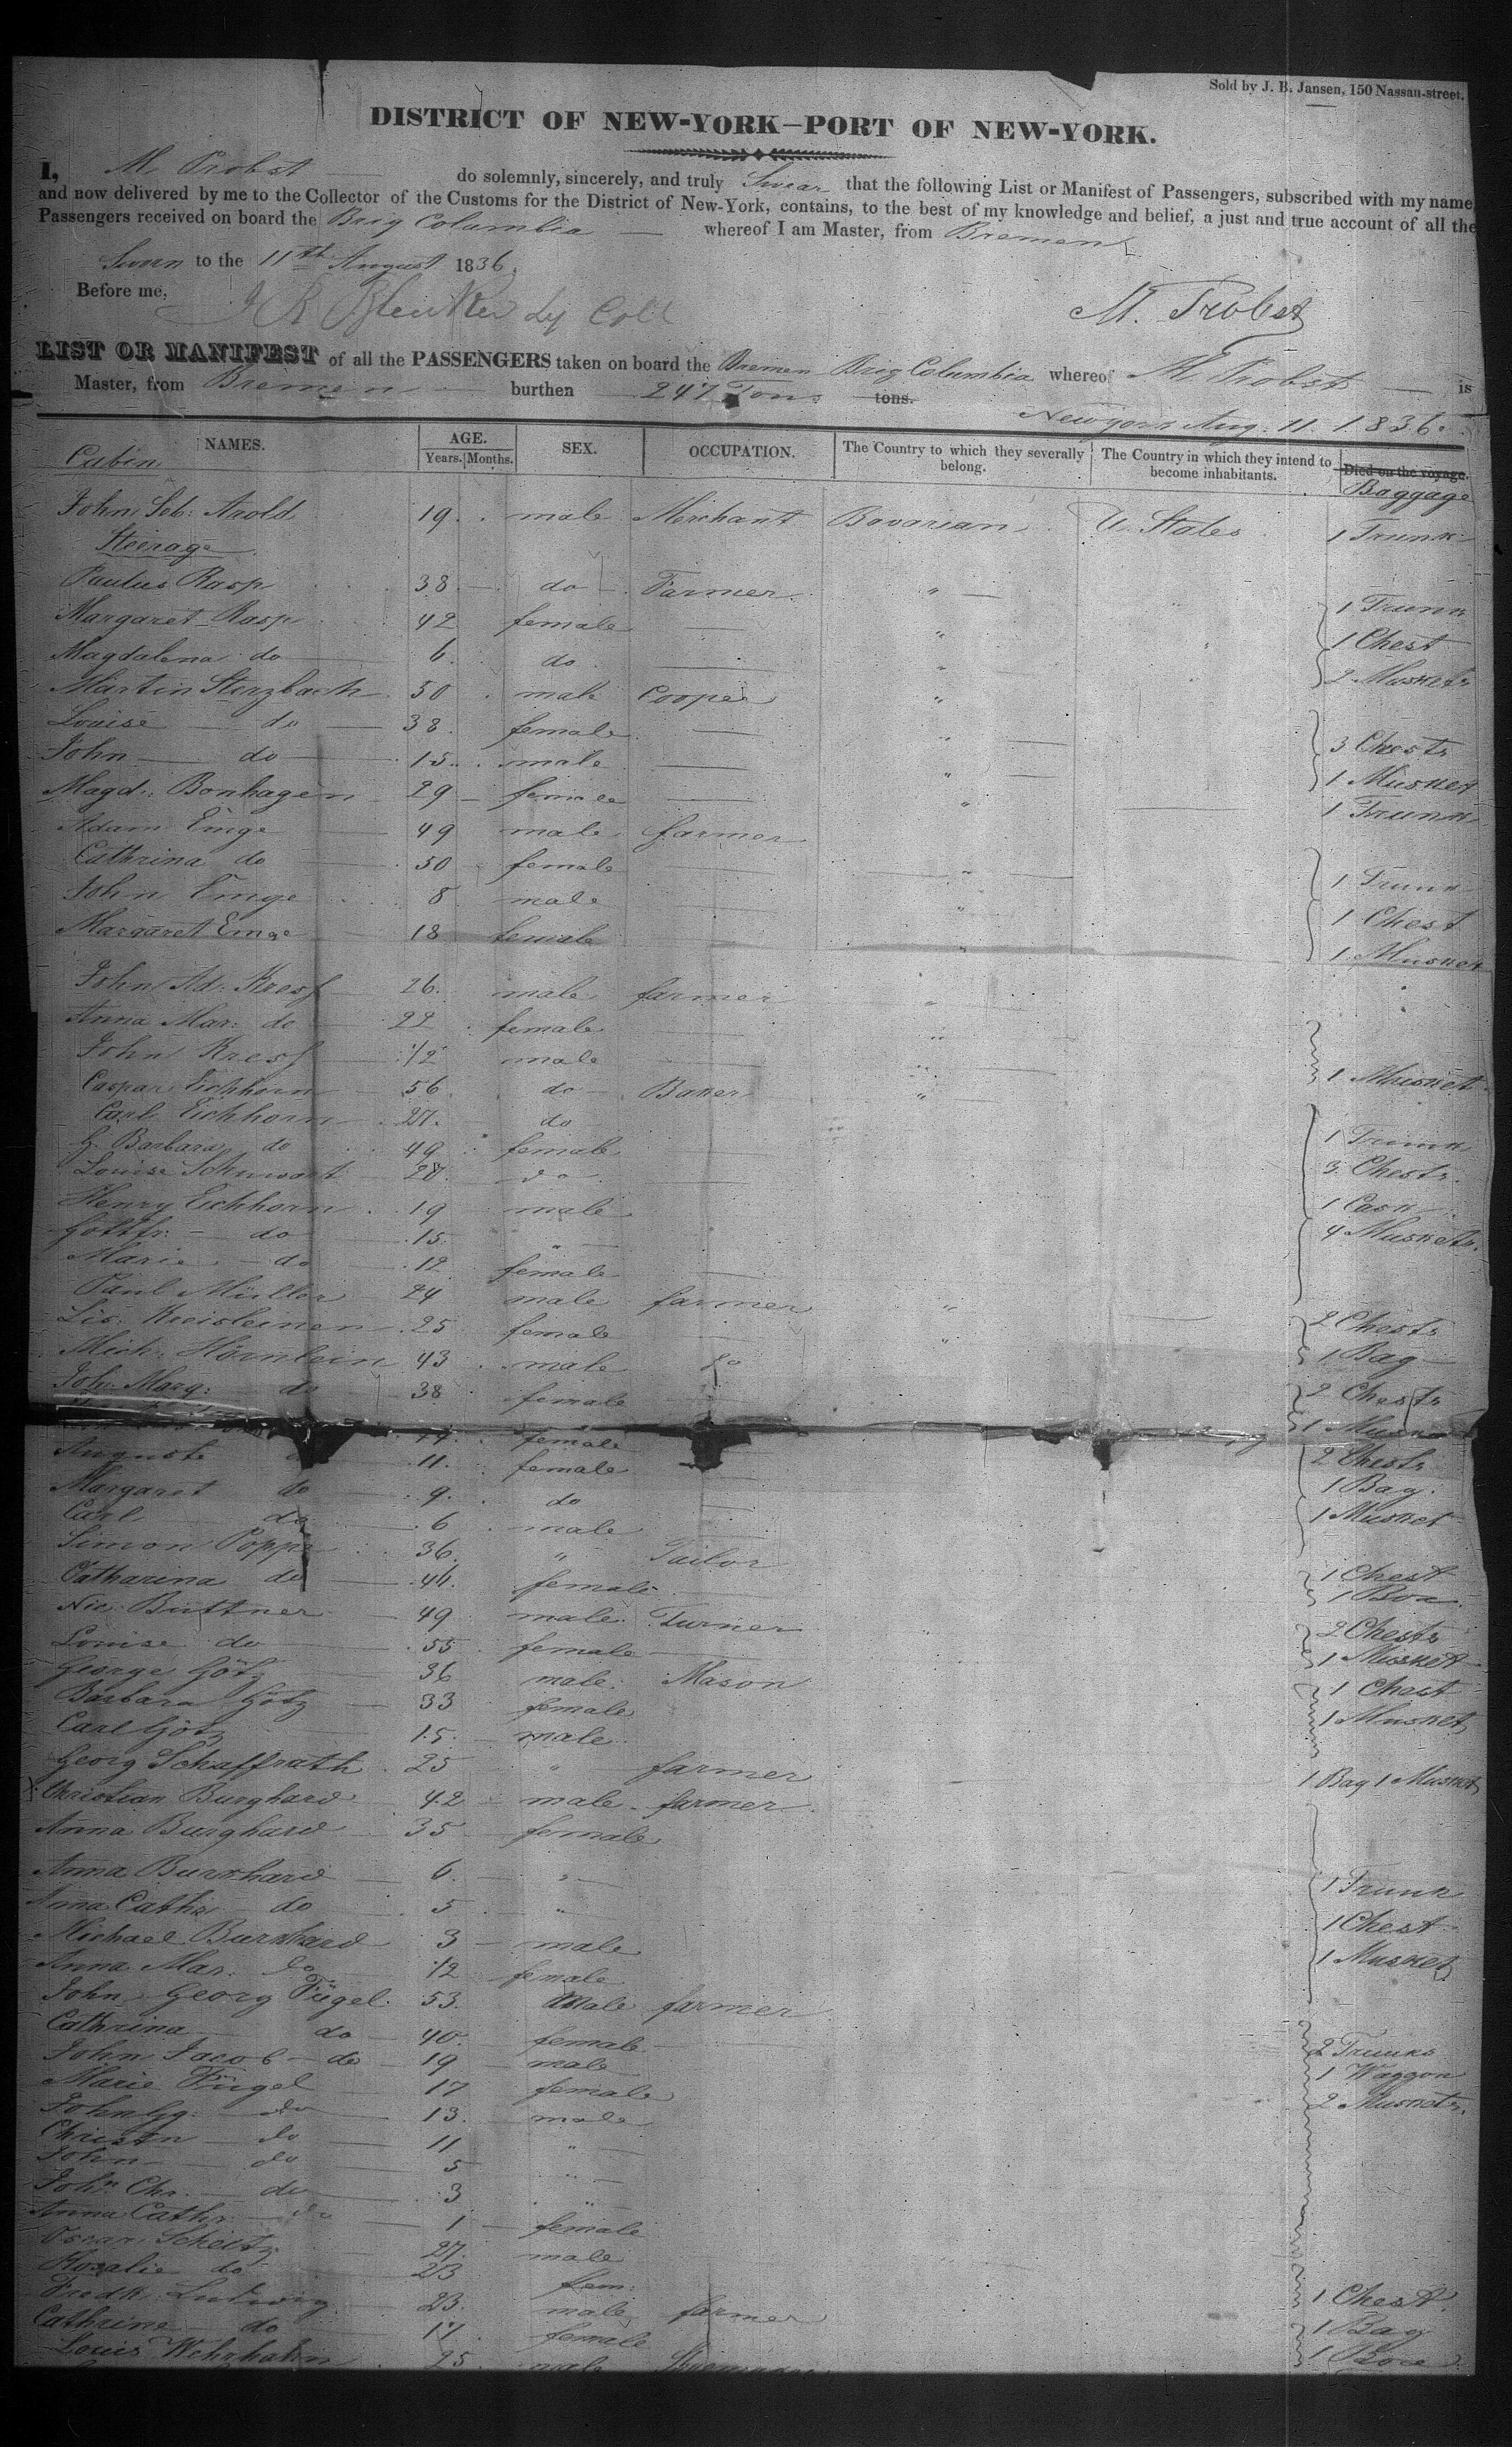 Sold by J. B. Jansen, 150 Nassau-street.
DISTRICT OF NEW-YORK—PORT OF NEW-YORK.
I, M. Probst do solemnly, sincerely, and truly Swear that the following List or Manifest of Passengers, subscribed with my name,
and now delivered by me to the Collector of the Customs for the District of New-York, contains, to the best of my knowledge and belief, a just and true account of all the
Passengers received on board the Brig Columbia whereof I am Master, from Bremen
Sworn to the 11th August 1836.
Before me, M. Probst
LIST OR MANIFEST of all the PASSENGERS taken on board the Bremen Brig Columbia whereof M. Probst is
Master, from Bremen burthen 247 Tons tons.
New York Aug. 11. 1836.
NAMES. AGE. SEX. OCCUPATION. The Country to which they severally belong. The Country in which they intend to become inhabitants. Died on the voyage.
Years. Months.
Cabin Baggage
John Seb: Arold 19 male Merchant Bavarian U. States 1 Trunk
Steerage
Paulus Rasp 38 do Farmer " 1 Trunk
Margaret Rasp 42 female " 1 Chest
Magdalena do 6 do " 2 Muskets
Martin Sterzbach 50 male Cooper "
Louise do 38 female " 3 Chests
John do 15 male " 1 Musket
Magd: Bonhagen 29 female " 1 Trunk
Adam Emge 49 male farmer
Cathrina do 50 female " 1 Trunk
John Emge 8 male " 1 Chest
Margaret Emge 18 female " 1 Musket
John Ad: Kress 26 male farmer "
Anna Mar: do 22 female "
John Kress 1/2 male " 1 Musket
Caspar Eichhorn 56 do Baker "
Carl Eichhorn 27 do 1 Trunk
G. Barbara do 49 female 3 Chests
Louise Schwart 28 do 1 Cask
Henry Eichhorn 19 male 4 Muskets
Gottfr: do 15 "
Marie do 12 female
Paul Müller 24 male farmer " 2 Chests
Lis: Kreisleinen 25 female " 1 Bag
Mich: Hörnlein 43 male do 2 Chests
Joh: Marg: do 38 female 1 Musket
female 2 Chests
Auguste 11 female 1 Bag
Margaret do 9 do 1 Musket
Carl do 6 male
Simon Poppe 36 " Tailor 1 Chest
Catharina do 44 female 1 Box
Nic: Buttner 49 male Turner 2 Chests
Louise do 55 female 1 Musket
George Götz 36 male Mason 1 Chest
Barbara Götz 33 female 1 Musket
Carl Götz 15 male
Georg Schaffrath 25 " farmer 1 Bag 1 Musket
Christian Burghard 42 male farmer
Anna Burghard 35 female
Anna Burkhard 6 " 1 Trunk
Anna Cathr do 5 " 1 Chest
Michael Burkhard 3 male 1 Musket
Anna Mar: do 1/2 female
John Georg Fügel 53 male farmer
Cathrina do 40 female 2 Trunks
John Jacob do 19 male 1 Waggon
Marie Fügel 17 female 2 Muskets
John Gg: do 13 male
Christn do 11 "
John do 5 "
John Chr. do 3 "
Anna Cathr do 1 female
Oscar Scheitz 27 male
Rosalie do 23 fem: 1 Chest
Fredk Ludwig 23 male farmer 1 Bag
Cathrine do 17 female 1 Box
Louis Wehrhahn 25 male